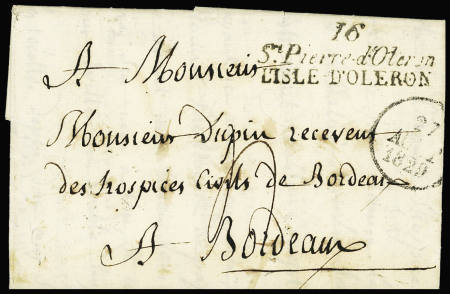 16
St Pierre-d'Oleron
LISLE-D'OLERON
A Monsieur
27
1829
Monsieur Dupin receveur
des hospices Civils de Bordeaux
A Bordeaux